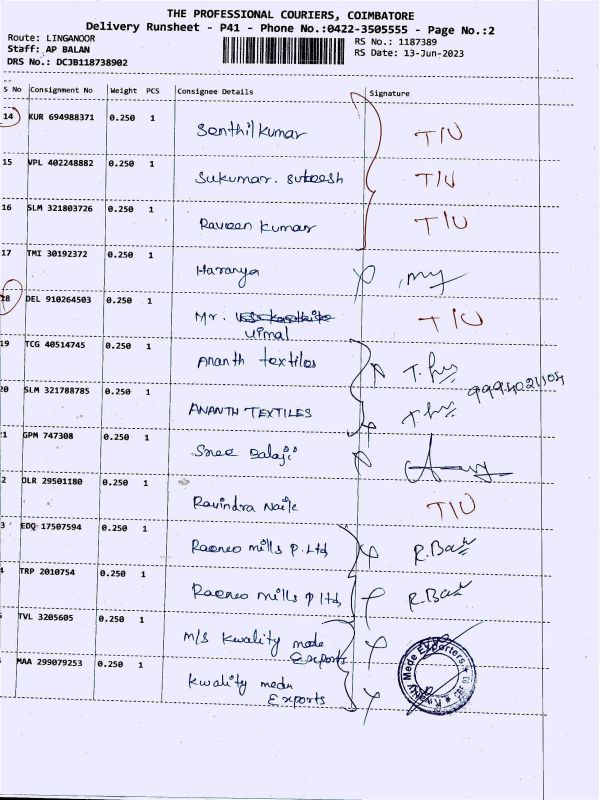 THE PROFESSIONAL COURIERS, COIMBATORE
Delivery Runsheet - P41 - Phone No.:0422-3505555 - Page No.:2
Route: LINGANOOR
Staff: AP BALAN
DRS No.: DCJB118738902
RS No.: 1187389
RS Date: 13-Jun-2023
S No Consignment No Weight PCS Consignee Details Signature
14 KUR 694988371 0.250 1 Senthil Kumar T/U
15 VPL 402248882 0.250 1 Sukumar. T/U
16 SLM 321803726 0.250 1 Raveen Kumar T/U
17 TMI 30192372 0.250 1 Haranya
18 DEL 910264503 0.250 1 Mr. T/U
Vimal
19 TCG 40514745 0.250 1 Ananth textiles
20 SLM 321788785 0.250 1 ANANTH TEXTILES
1 GPM 747308 0.250 1 Sree Balaji
2 DLR 29501180 0.250 1 Ravindra Naik T/U
3 EDQ 17507594 0.250 1 mills P. Ltd
4 TRP 2010754 0.250 1 mills P ltd
TVL 3205605 0.250 1 M/s Kwality mede
Exports
MAA 299079253 0.250 1 Kwality mede
Exports
Kwality Mede Exporters